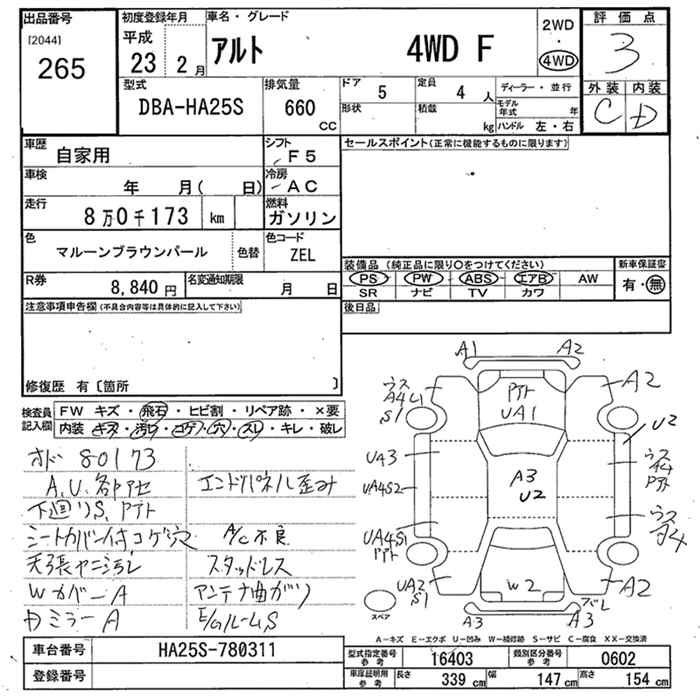 出品番号
[2044]
265
初度登録年月
平成
23 2月
車名・グレード
アルト 4WD F
2WD
・
4WD
評価点
3
外装 内装
C D
型式
DBA-HA25S
排気量
660 CC
ドア 5
定員 4 人
形状
積載 kg
ディーラー・並行
モデル年式 年
ハンドル 左・右
車歴
自家用
シフト
F5
車検
年 月( 日)
冷房
AC
走行
8万0千173 km
燃料
ガソリン
色
マルーンブラウンパール
色替
色コード
ZEL
R券
8,840 円
名変通知期限
月 日
セールスポイント(正常に機能するものに限ります)
装備品(純正品に限り○をつけてください)
PS PW ABS エアB AW
SR ナビ TV カワ
新車保証書
有・無
後日品
注意事項申告欄(不具合内容等は具体的に記入して下さい)
修復歴 有〔箇所 〕
検査員記入欄
FW キズ・飛石・ヒビ割・リペア跡・×要
内装・キズ・汚レ・コゲ・穴・スレ・キレ・破レ
オド 80173
A.U.各部アセ
エンドパネル歪み
下廻りS、Pアト
シートカバー付コゲ穴
A/C不良
天張ヤニ汚レ
スタッドレス
WカバーA
アンテナ曲がり
カミラーA
E/GルームS
A1
A2
ウス
A4U1
S1
Pアト
UA1
A2
U2
UA3
UA4S2
A3
U2
ウス
A4
Pアト
UA4S1
Pアト
ウス
A4
UA2
S1
W2
A2
A3
アバレ
A3
スペア
A-キズ E-エクボ U-凹み W-補修跡 S-サビ C-腐食 XX-交換済
車台番号
HA25S-780311
登録番号
型式指定番号 参考
16403
類別区分番号 参考
0602
車庫証明用 参考
長さ 339 cm
幅 147 cm
高さ 154 cm